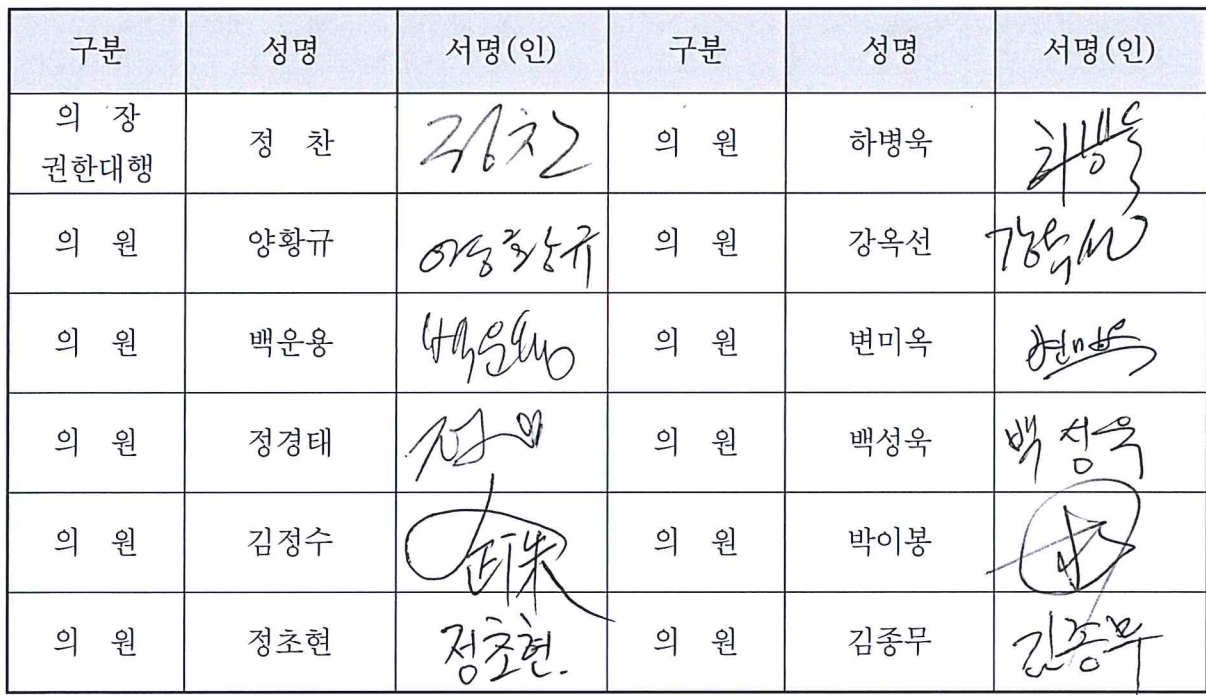 구분 성명 서명(인) 구분 성명 서명(인)
의 장
권한대행 정 찬 정찬 의 원 하병욱 하병욱
의 원 양황규 양황규 의 원 강옥선 강옥선
의 원 백운용 백운용 의 원 변미옥 변미옥
의 원 정경태 정 의 원 백성욱 백성욱
의 원 김정수 의 원 박이봉
의 원 정초현 정초현. 의 원 김종무 김종무